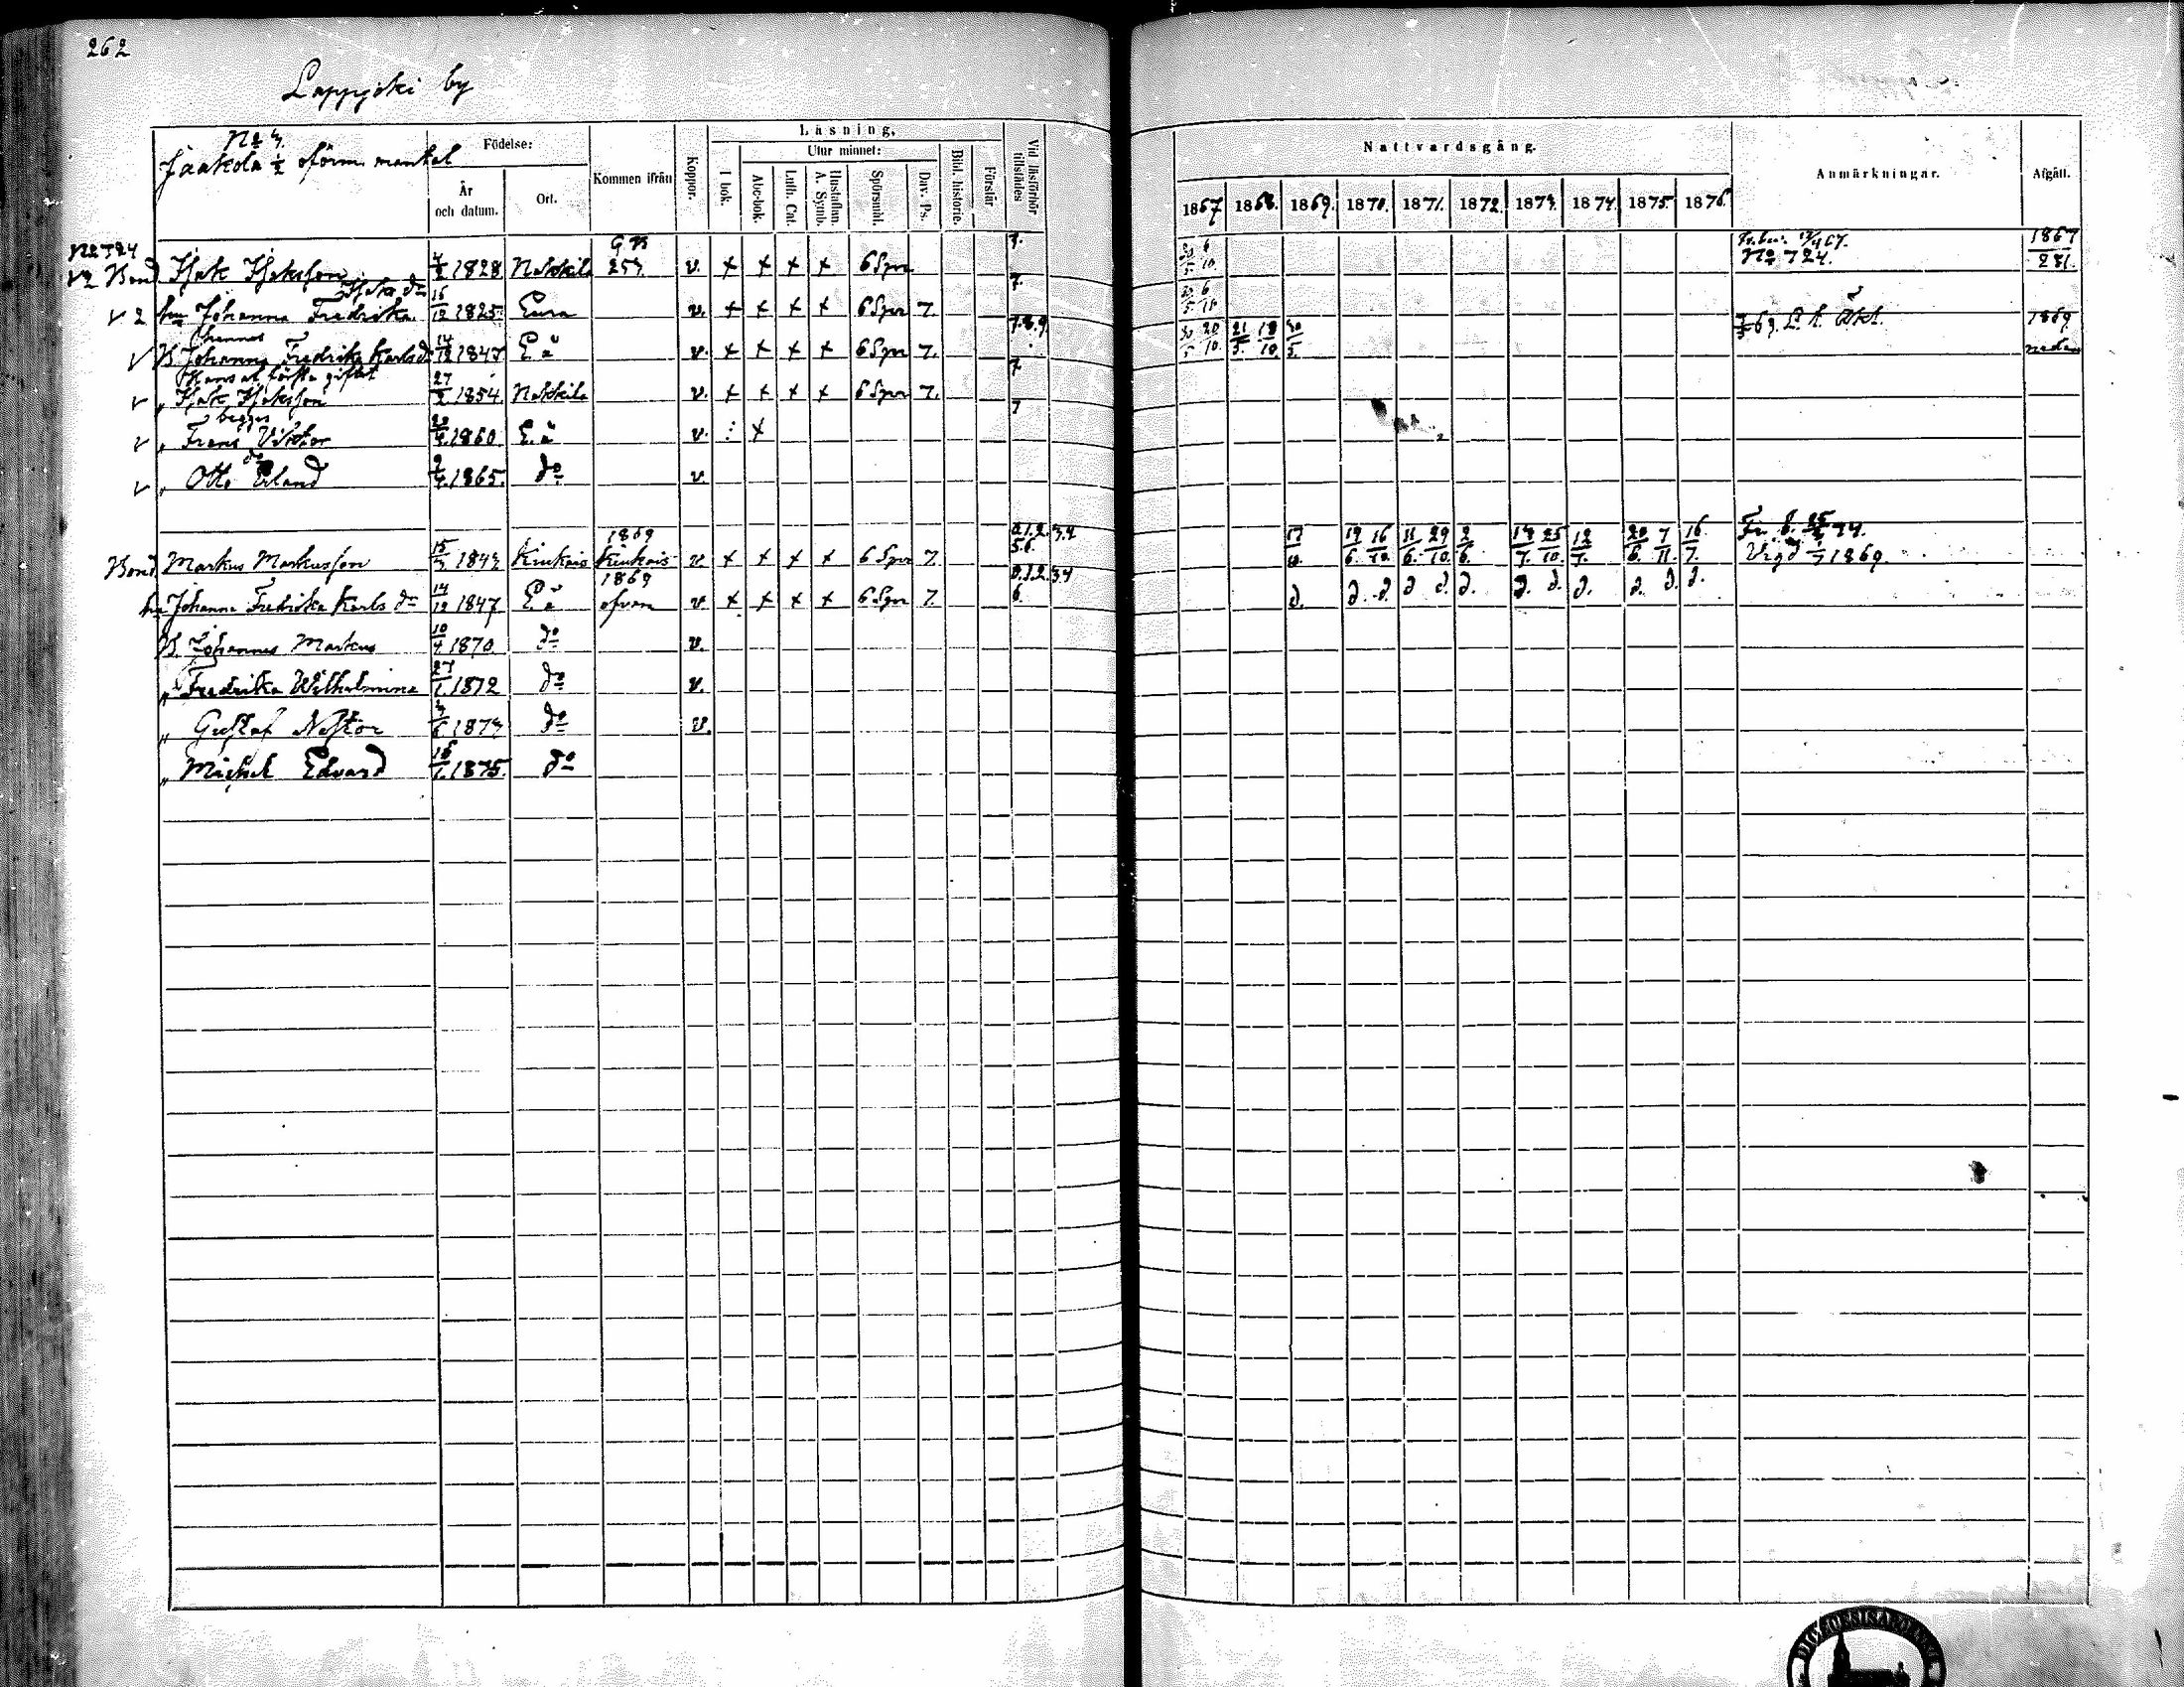 262
Lappijoki by
No 3.
Jaakola ½ oförm. mantal
Födelse:
År och datum.
Ort.
Kommen ifrån
Koppor.
Läsning,
I bok.
Utur minnet:
Abc-bok.
Luth. Cat.
Hustaflan A. Symb.
Spörsmål.
Dav. Ps.
Bibl. historie.
Förstår
Vid läsförhör tillstädes
Nattvardsgång.
1867 1868. 1869. 1870. 1871. 1872. 1873. 1874. 1875. 1876.
Anmärkningar.
Afgått.
No 724 G B 7. 1867
Bond Isak Isaksson 4/2 1828 Nakkila 253. v. + + + + 6 Spr 30/5 6/10 No 724. 281.
Isaks dr 7.
hu Johanna Fredrika 16/12 1825 Eura v. + + + + 6 Spr 7. 30/5 6/10
hennes 7.8.9. 1869
B. Johanna Fredrika Karls dr 14/12 1847 E å v. + + + + 6 Spr 7. 30/5 20/10 21/5. 18/10. 30/5. nedan
Hans af första giftet 7
" Isak Isaksson 27/2 1854 Nakkila v. + + + + 6 Spr 7.
begges 7
" Frans Viktor 20/4. 1860 E. å v. : +
do
" Otto Erland 9/4. 1865. do v.
1869 0.1.2.3.4
Bond Markus Markusson 15/3 1843 Kiukais Kiukais v. + + + + 6 Spr 7. 5.6. 17/10. 19/6. 16/10. 11/6. 29/10. 2/6. 13/7. 25/10. 12/7. 20/6. 7/11. 16/7. Vigd 1869.
1869 0.1.2.3.4
hu Johanna Fredrika Karls dr 14/12 1847 E å ofvan v + + + + 6 Spr 7. 6. d. d. d. d d. d. d. d. d. d. d. d.
B. Johannes Markus 10/4 1870 do v.
" Fredrika Wilhelmina 27/1. 1872 do v.
" Gustaf Nestor 3/6 1873 do v.
" Michel Edvard 18/1. 1875. do